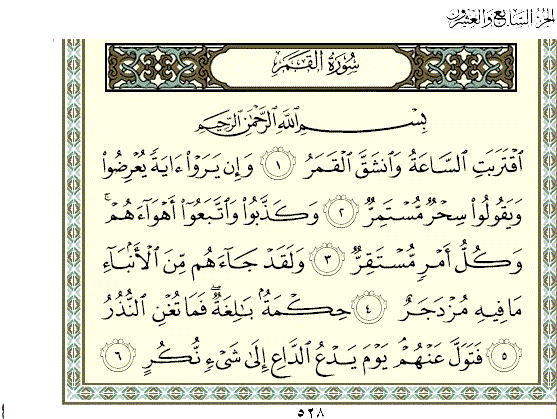 الجزء السابع والعشرون
سُورَةُ القَمَرِ
بِسْمِ اللَّهِ الرَّحْمَٰنِ الرَّحِيمِ
ٱقْتَرَبَتِ ٱلسَّاعَةُ وَٱنشَقَّ ٱلْقَمَرُ ١ وَإِن يَرَوْا۟ ءَايَةً يُعْرِضُوا۟
وَيَقُولُوا۟ سِحْرٌ مُّسْتَمِرٌّ ٢ وَكَذَّبُوا۟ وَٱتَّبَعُوٓا۟ أَهْوَآءَهُمْ ۚ
وَكُلُّ أَمْرٍ مُّسْتَقِرٌّ ٣ وَلَقَدْ جَآءَهُم مِّنَ ٱلْأَنۢبَآءِ
مَا فِيهِ مُزْدَجَرٌ ٤ حِكْمَةٌۢ بَٰلِغَةٌ ۖ فَمَا تُغْنِ ٱلنُّذُرُ
٥ فَتَوَلَّ عَنْهُمْ ۘ يَوْمَ يَدْعُ ٱلدَّاعِ إِلَىٰ شَىْءٍ نُّكُرٍ ٦
٥٢٨